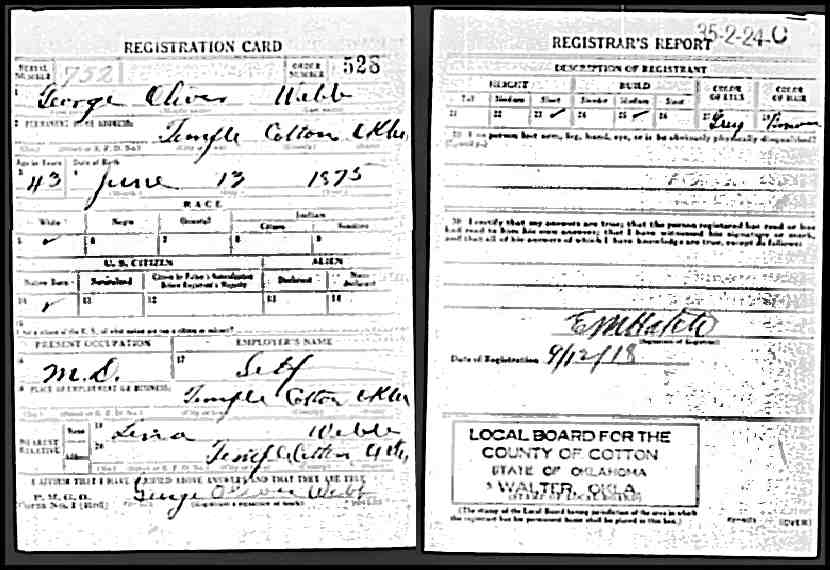 REGISTRATION CARD
SERIAL NUMBER 752 ORDER NUMBER 526
1 George Oliver Webb
2 PERMANENT HOME ADDRESS:
Temple Cotton Okla
Age in Years Date of Birth
3 43 4 June 13 1875
RACE
White Negro Oriental Indian
Citizen Noncitizen
5 ✓ 6 7 8 9
U. S. CITIZEN ALIEN
Native Born Naturalized Citizen by Father's Naturalization Before Registrant's Majority Declarant Non-declarant
10 ✓ 11 12 13 14
15
If not a citizen of the U. S., of what nation are you a citizen or subject?
PRESENT OCCUPATION EMPLOYER'S NAME
16 M.D. 17 Self
18 PLACE OF EMPLOYMENT OR BUSINESS:
Temple Cotton Okla
NEAREST RELATIVE Name 19 Webb
Address 20 Temple Cotton Okla
I AFFIRM THAT I HAVE VERIFIED ABOVE ANSWERS AND THAT THEY ARE TRUE
P. M. G. O.
Form No. 1 (Red) George Oliver Webb
35-2-24-C
REGISTRAR'S REPORT
DESCRIPTION OF REGISTRANT
HEIGHT BUILD COLOR OF EYES COLOR OF HAIR
Tall Medium Short Slender Medium Stout
21 22 23 ✓ 24 25 ✓ 26 27 Grey 28 Brown
29 Has person lost arm, leg, hand, eye, or is he obviously physically disqualified?
(Specify.)
30 I certify that my answers are true; that the person registered has read or has
had read to him his own answers; that I have witnessed his signature or mark,
and that all of his answers of which I have knowledge are true, except as follows:
(Signature of Registrar)
Date of Registration 9/12/18
LOCAL BOARD FOR THE
COUNTY OF COTTON
STATE OF OKLAHOMA
WALTER, OKLA.
(STAMP OF LOCAL BOARD)
(The stamp of the Local Board having jurisdiction of the area in which
the registrant has his permanent home shall be placed in this box.)
(OVER)